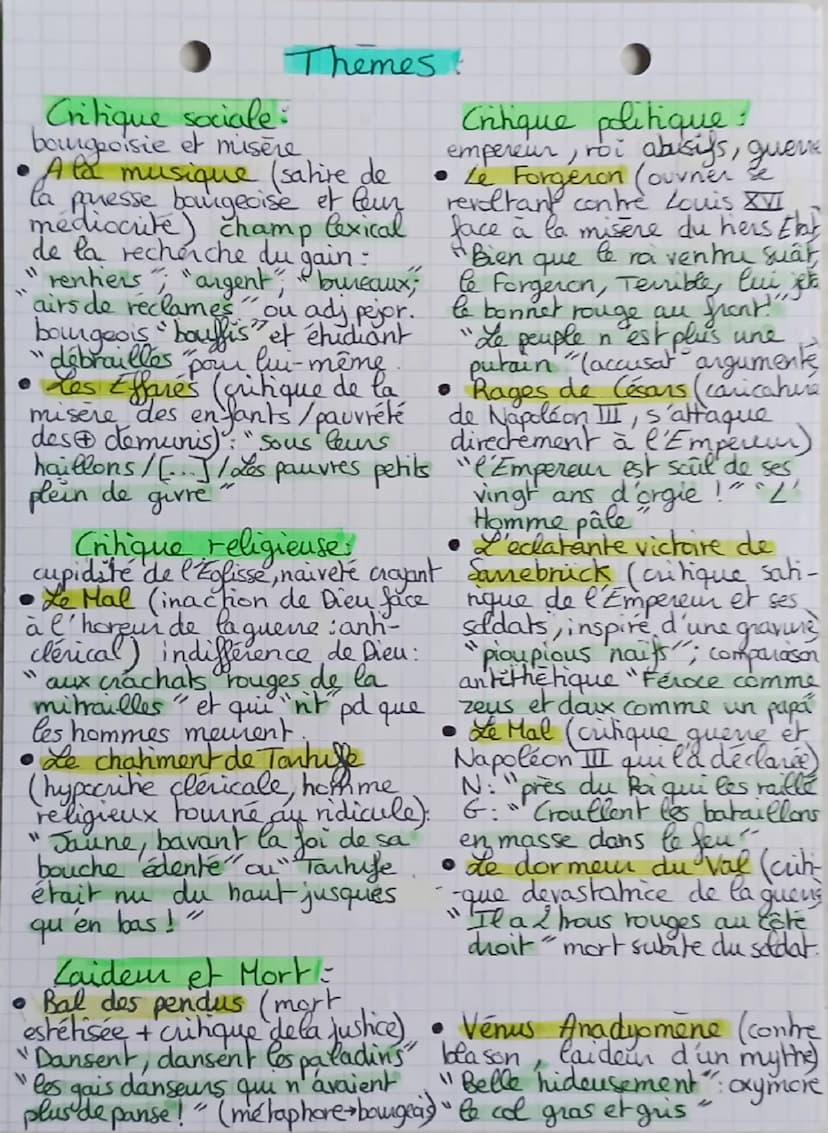 Thèmes :
Critique sociale :
bourgeoisie et misère
• A la musique (satire de
la presse bourgeoise et leur
médiocrité) champ lexical
de la recherche du gain :
"rentiers" ; "argent" ; "bureaux",
"airs de réclames" ou adj péjor.
bourgeois "bouffis" et étudiant
"débraillés" pour lui-même.
• Les Effarés (critique de la
misère des enfants / pauvreté
des ⊕ demunis) : "sous leurs
haillons / [...] / Les pauvres petits
plein de givre"
Critique religieuse :
cupidité de l'Eglisse, naiveté croyant
• Le Mal (inaction de Dieu face
à l'horeur de la guerre : anti-
clérical) indifférence de Dieu :
"aux crachats rouges de la
mitrailles" et qui "rit" pd que
les hommes meurent.
• Le chatiment de Tartuffe
(hypocrite cléricale, homme
religieux tourné au ridicule) :
"Jaune, bavant la foi de sa
bouche édenté" ou "Tartufe
était nu du haut jusques
qu'en bas !"
Laideur et Mort :
• Bal des pendus (mort
estétisée + critique de la justice)
"Dansent, dansent les paladins"
"les gais danseurs qui n'avaient
plus de panse !" (métaphore→bourgeois)
Critique politique :
empereur, roi abusifs, guerre
• Le Forgeron (ouvrier se
revoltant contre Louis XVI
face à la misère du tiers Etat
"Bien que le roi ventru suât,
le Forgeron, Terrible, lui jet
le bonnet rouge au front!"
"Le peuple n'est plus une
putain" (accusat° argumenté
• Rages de Césars (caricature
de Napoléon III, s'attaque
directement à l'Empereur)
"l'Empereur est soûl de ses
vingt ans d'orgie !" "L'
Homme pâle"
• L'eclatante victoire de
Sarrebrück (critique sati-
rique de l'Empereur et ses
soldats, inspiré d'une gravure
"pioupious naïfs" ; comparaison
antithétique "Féroce comme
zeus et doux comme un papa
• Le Mal (critique guerre et
Napoléon III qui l'a déclarée)
N : "près du Roi qui les raille
G : "Croullent les bataillons
en masse dans le feu"
• Le dormeur du Val (criti-
-que devastatrice de la guerre
"Il a 2 trous rouges au côté
droit" mort subite du soldat.
• Vénus Anadyomène (contre
blason, laideur d'un mythe)
"Belle hideusement" : oxymore
"le col gras et gris"